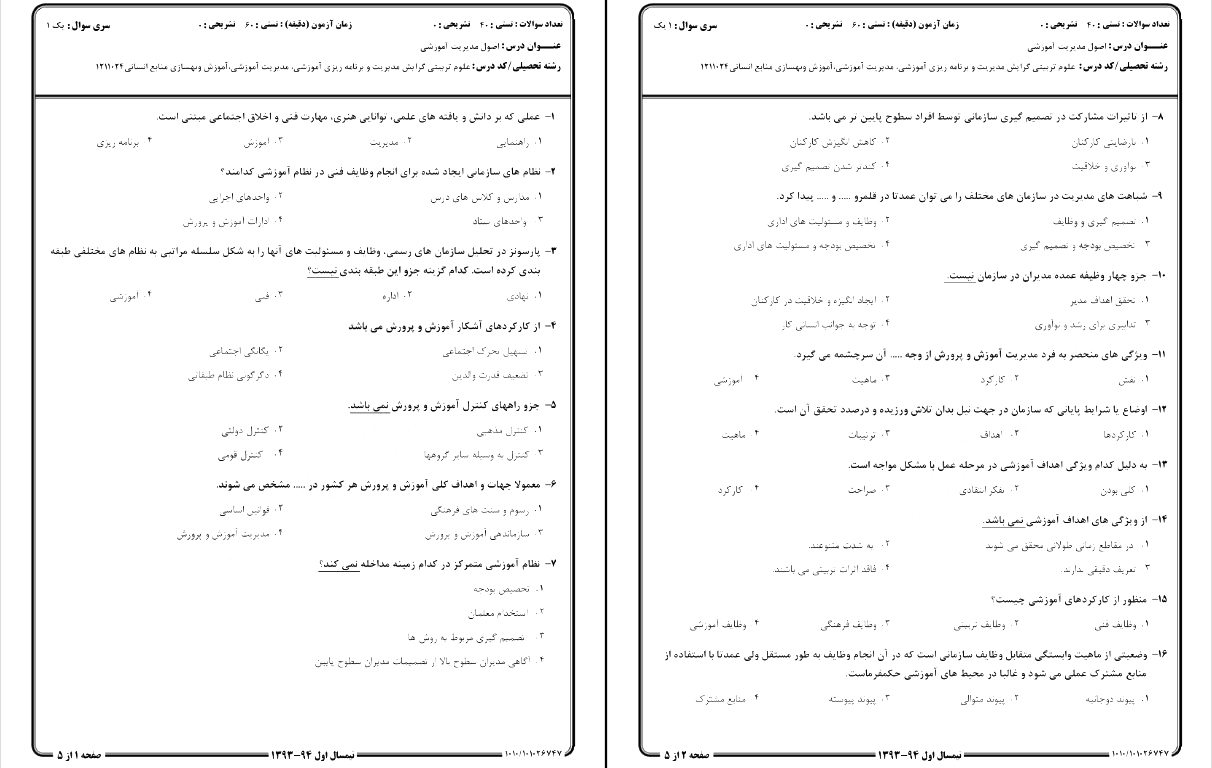 تعداد سوالات : تستی : ۴۰ تشریحی : ۰
زمان آزمون (دقیقه) : تستی : ۶۰ تشریحی : ۰
سری سوال : یک ۱
عنـــوان درس : اصول مدیریت آموزشی
رشته تحصیلی/کد درس : علوم تربیتی گرایش مدیریت و برنامه ریزی آموزشی، مدیریت آموزشی،آموزش وبهسازی منابع انسانی ۱۲۱۱۰۲۴
۱- عملی که بر دانش و یافته های علمی، توانایی هنری، مهارت فنی و اخلاق اجتماعی مبتنی است.
۱. راهنمایی ۲. مدیریت ۳. آموزش ۴. برنامه ریزی
۲- نظام های سازمانی ایجاد شده برای انجام وظایف فنی در نظام آموزشی کدامند؟
۱. مدارس و کلاس های درس ۲. واحدهای اجرایی
۳. واحدهای ستاد ۴. ادارات آموزش و پرورش
۳- پارسونز در تحلیل سازمان های رسمی، وظایف و مسئولیت های آنها را به شکل سلسله مراتبی به نظام های مختلفی طبقه
بندی کرده است. کدام گزینه جزو این طبقه بندی نیست؟
۱. نهادی ۲. اداره ۳. فنی ۴. آموزشی
۴- از کارکردهای آشکار آموزش و پرورش می باشد
۱. تسهیل تحرک اجتماعی ۲. یگانگی اجتماعی
۳. تضعیف قدرت والدین ۴. دگرگونی نظام طبقاتی
۵- جزو راههای کنترل آموزش و پرورش نمی باشد.
۱. کنترل مذهبی ۲. کنترل دولتی
۳. کنترل به وسیله سایر گروهها ۴. کنترل قومی
۶- معمولا جهات و اهداف کلی آموزش و پرورش هر کشور در ..... مشخص می شوند.
۱. رسوم و سنت های فرهنگی ۲. قوانین اساسی
۳. سازماندهی آموزش و پرورش ۴. مدیریت آموزش و پرورش
۷- نظام آموزشی متمرکز در کدام زمینه مداخله نمی کند؟
۱. تخصیص بودجه
۲. استخدام معلمان
۳. تصمیم گیری مربوط به روش ها
۴. آگاهی مدیران سطوح بالا از تصمیمات مدیران سطوح پایین
صفحه ۱ از ۵
نیمسال اول ۹۴-۱۳۹۳
۱۰۱۰/۱۰۱۰۲۶۷۴۷
تعداد سوالات : تستی : ۴۰ تشریحی : ۰
زمان آزمون (دقیقه) : تستی : ۶۰ تشریحی : ۰
سری سوال : ۱ یک
عنـــوان درس : اصول مدیریت آموزشی
رشته تحصیلی/کد درس : علوم تربیتی گرایش مدیریت و برنامه ریزی آموزشی، مدیریت آموزشی،آموزش وبهسازی منابع انسانی ۱۲۱۱۰۲۴
۸- از تاثیرات مشارکت در تصمیم گیری سازمانی توسط افراد سطوح پایین تر می باشد.
۱. نارضایتی کارکنان ۲. کاهش انگیزش کارکنان
۳. نوآوری و خلاقیت ۴. کندتر شدن تصمیم گیری
۹- شباهت های مدیریت در سازمان های مختلف را می توان عمدتا در قلمرو ..... و ..... پیدا کرد.
۱. تصمیم گیری و وظایف ۲. وظایف و مسئولیت های اداری
۳. تخصیص بودجه و تصمیم گیری ۴. تخصیص بودجه و مسئولیت های اداری
۱۰- جزو چهار وظیفه عمده مدیران در سازمان نیست.
۱. تحقق اهداف مدیر ۲. ایجاد انگیزه و خلاقیت در کارکنان
۳. تدابیری برای رشد و نوآوری ۴. توجه به جوانب انسانی کار
۱۱- ویژگی های منحصر به فرد مدیریت آموزش و پرورش از وجه ..... آن سرچشمه می گیرد.
۱. نقش ۲. کارکرد ۳. ماهیت ۴. آموزشی
۱۲- اوضاع یا شرایط پایانی که سازمان در جهت نیل بدان تلاش ورزیده و درصدد تحقق آن است.
۱. کارکردها ۲. اهداف ۳. ترتیبات ۴. ماهیت
۱۳- به دلیل کدام ویژگی اهداف آموزشی در مرحله عمل با مشکل مواجه است.
۱. کلی بودن ۲. تفکر انتقادی ۳. صراحت ۴. کارکرد
۱۴- از ویژگی های اهداف آموزشی نمی باشد.
۱. در مقاطع زمانی طولانی محقق می شوند ۲. به شدت متنوعند.
۳. تعریف دقیقی ندارند. ۴. فاقد اثرات تربیتی می باشند.
۱۵- منظور از کارکردهای آموزشی چیست؟
۱. وظایف فنی ۲. وظایف تربیتی ۳. وظایف فرهنگی ۴. وظایف آموزشی
۱۶- وضعیتی از ماهیت وابستگی متقابل وظایف سازمانی است که در آن انجام وظایف به طور مستقل ولی عمدتا با استفاده از
منابع مشترک عملی می شود و غالبا در محیط های آموزشی حکمفرماست.
۱. پیوند دوجانبه ۲. پیوند متوالی ۳. پیوند پیوسته ۴. منابع مشترک
صفحه ۲ از ۵
نیمسال اول ۹۴-۱۳۹۳
۱۰۱۰/۱۰۱۰۲۶۷۴۷